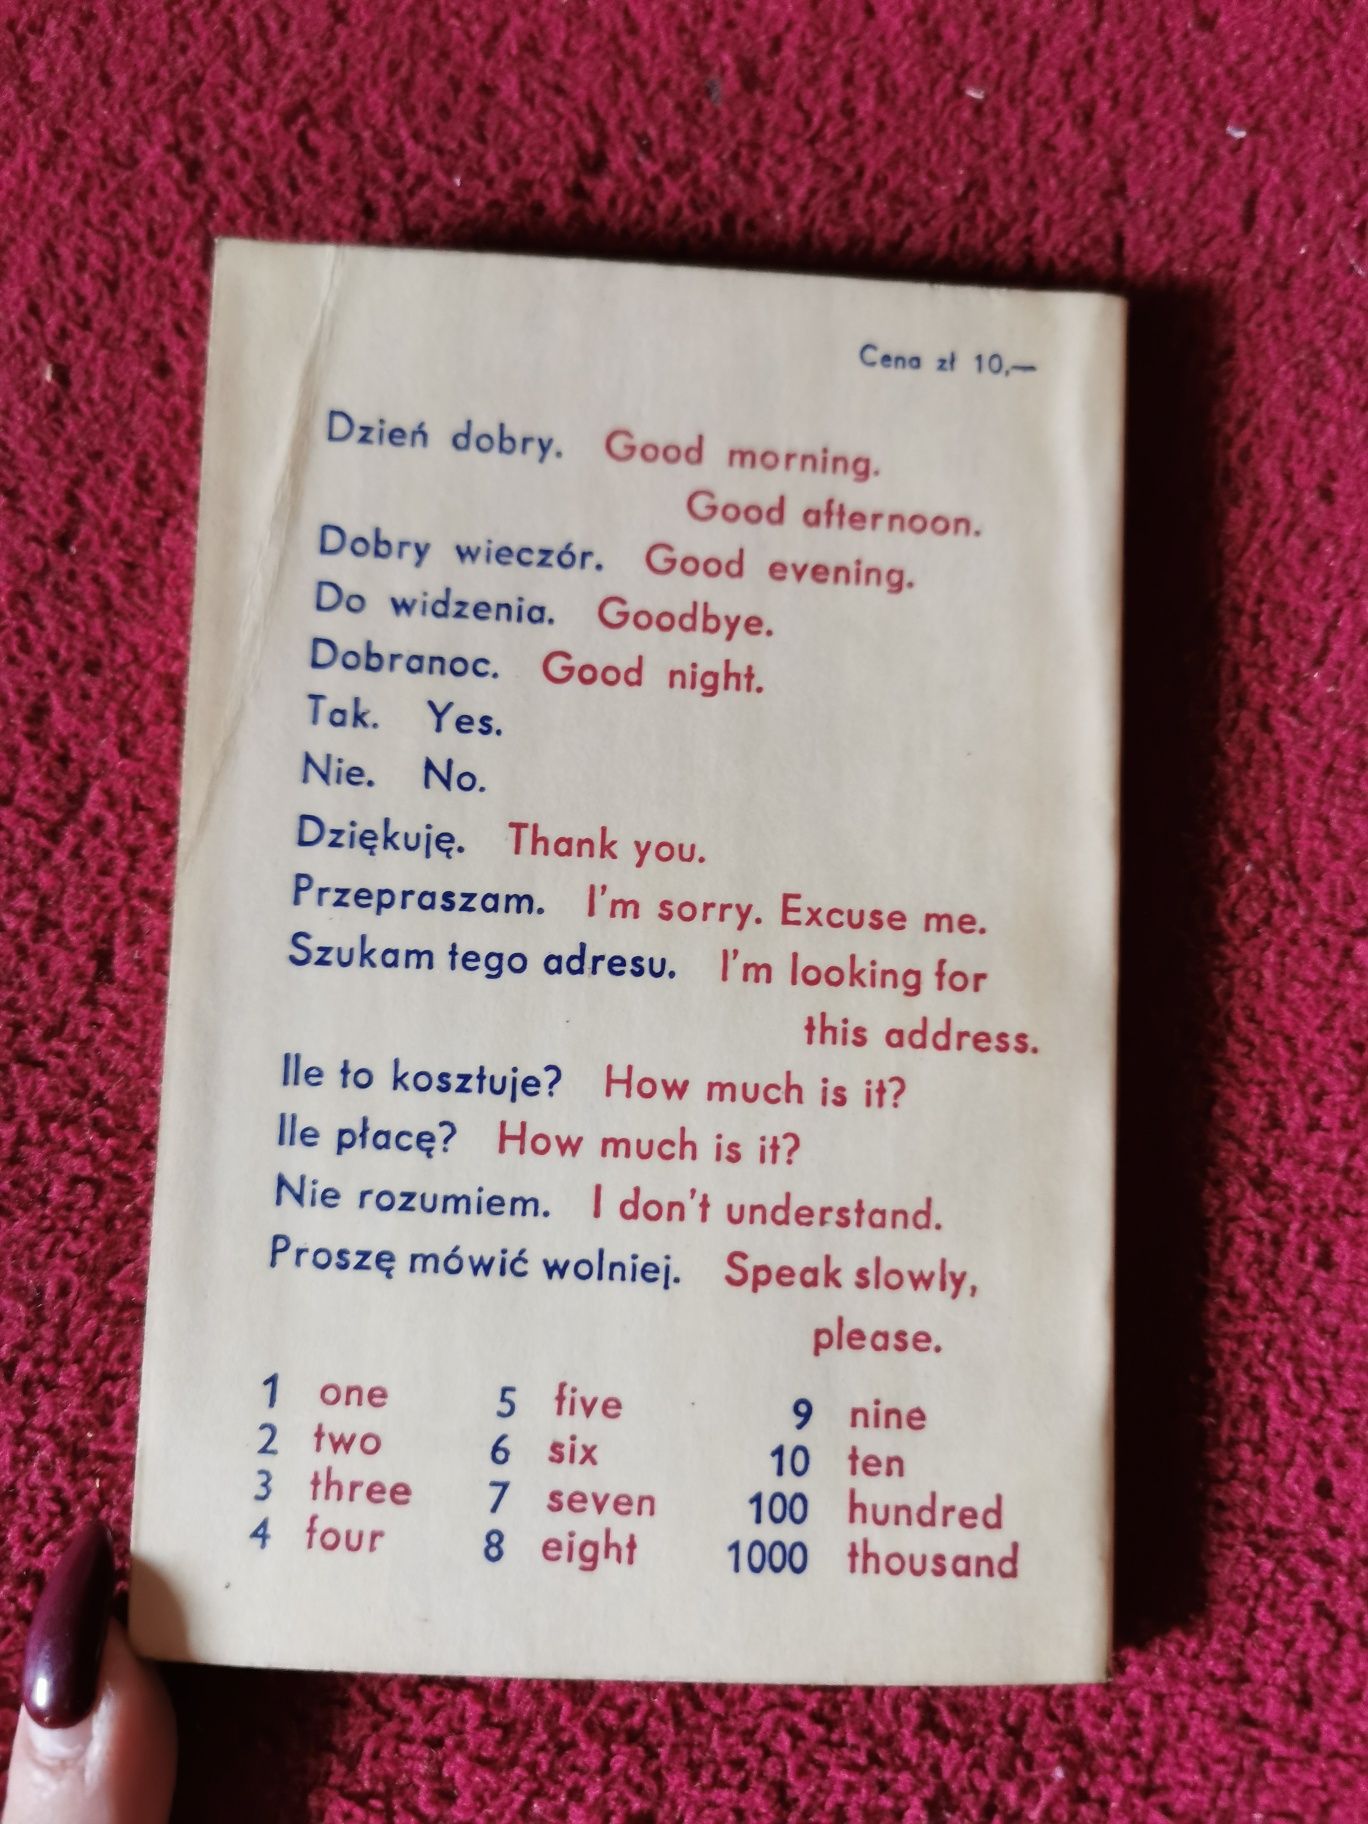 Cena zł 10,—
Dzień dobry. Good morning.
Good afternoon.
Dobry wieczór. Good evening.
Do widzenia. Goodbye.
Dobranoc. Good night.
Tak. Yes.
Nie. No.
Dziękuję. Thank you.
Przepraszam. I'm sorry. Excuse me.
Szukam tego adresu. I'm looking for
this address.
Ile to kosztuje? How much is it?
Ile płacę? How much is it?
Nie rozumiem. I don't understand.
Proszę mówić wolniej. Speak slowly,
please.
1 one 5 five 9 nine
2 two 6 six 10 ten
3 three 7 seven 100 hundred
4 four 8 eight 1000 thousand